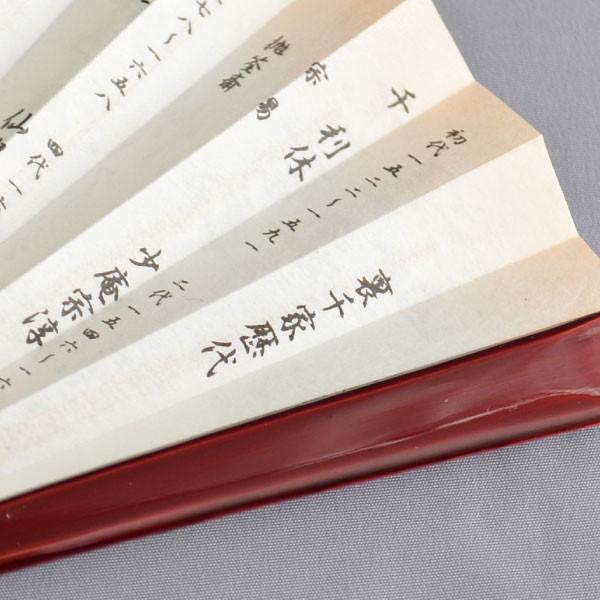 裏千家歴代
初代一五二二〜一五九一
千利休
宗易
抛筌斎
二代一五四六〜一六
少庵宗淳
七八〜一六五八
四代一六
仙